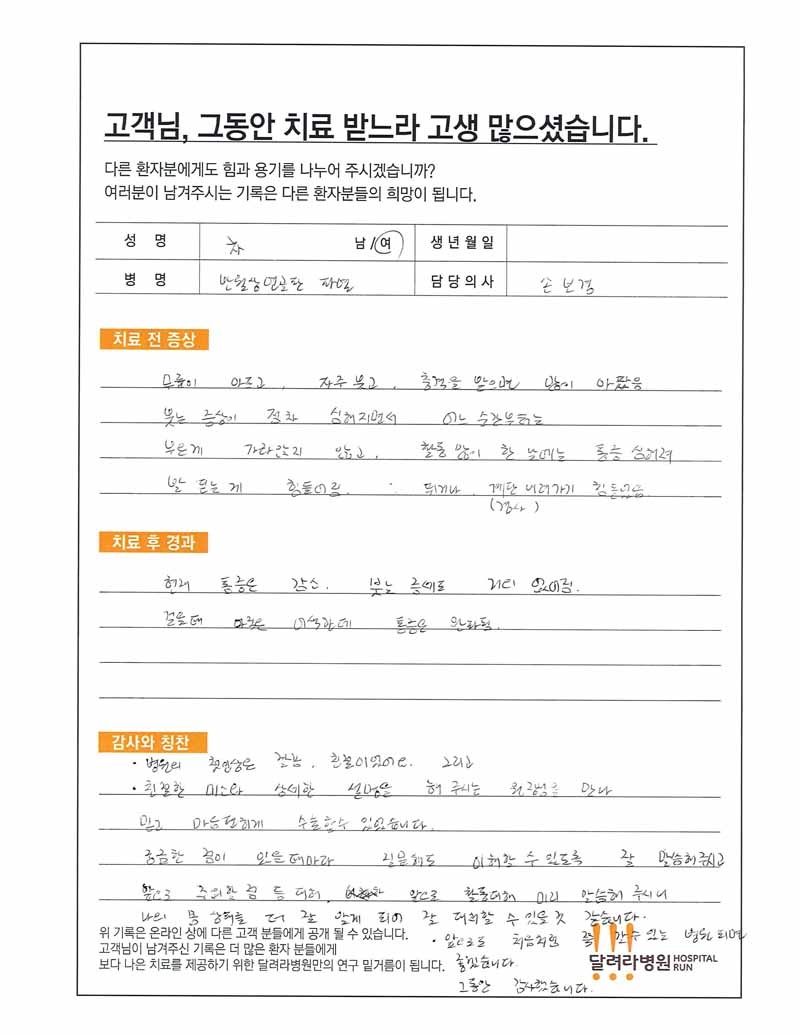 고객님, 그동안 치료 받느라 고생 많으셨습니다.
다른 환자분에게도 힘과 용기를 나누어 주시겠습니까?
여러분이 남겨주시는 기록은 다른 환자분들의 희망이 됩니다.
성 명 차 남/여 생년월일
병 명 반월상연골판 파열 담당의사 손보경
치료 전 증상
무릎이 아프고, 자주 붓고, 충격을 받으면 많이 아팠음
붓는 증상이 점차 심해지면서 어느 순간부터는
부은게 가라앉지 않고, 활동 많이 한 날에는 통증 심해져
발 딛는게 힘들어짐. 뛰거나, 계단 내려가기 힘들었음
(경사)
치료 후 경과
현재 통증은 감소. 붓는 증세도 거의 없어짐.
걸을때 아직은 어색한데 통증은 완화됨.
감사와 칭찬
· 병원의 첫인상은 깔끔, 친절이었어요. 그리고
· 친절한 미소와 상세한 설명을 해 주시는 원장님을 만나
믿고 마음편하게 수술할수 있었습니다.
궁금한 점이 있을때마다 질문해도 이해할 수 있도록 잘 말씀해주시고
앞으로 주의할 점 등 대해, 앞으로 활동대해 미리 말씀해 주시니
나의 몸 상태를 더 잘 알게 되어 잘 대처할 수 있을것 같습니다.
위 기록은 온라인 상에 다른 고객 분들에게 공개 될 수 있습니다.
고객님이 남겨주신 기록은 더 많은 환자 분들에게
보다 나은 치료를 제공하기 위한 달려라병원만의 연구 밑거름이 됩니다.
· 앞으로도 처음처럼 쭉 갈수 있는 병원 되면
좋겠습니다.
그동안 감사했습니다.
달려라병원 HOSPITAL RUN